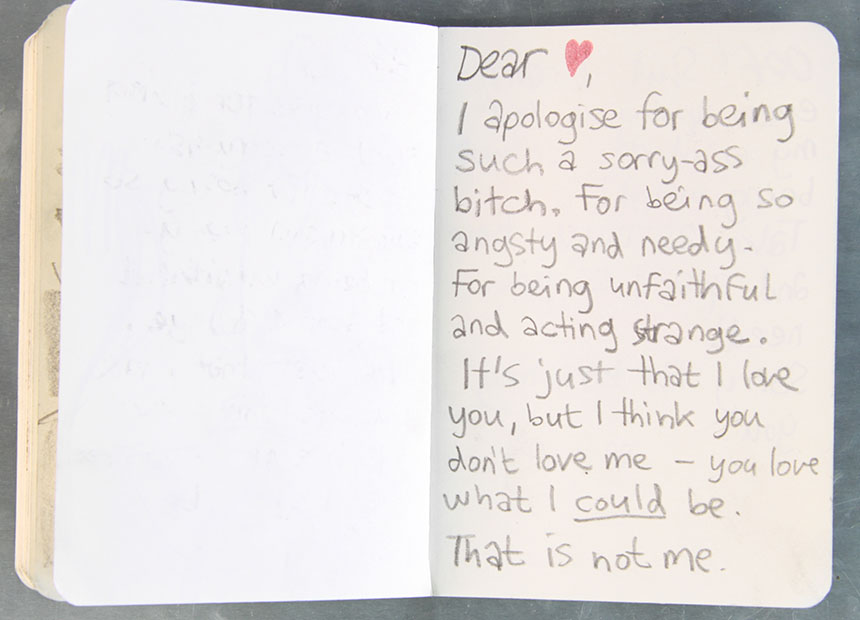 Dear ♥,
I apologise for being
such a sorry-ass
bitch. For being so
angsty and needy.
For being unfaithful
and acting strange.
It's just that I love
you, but I think you
don't love me – you love
what I could be.
That is not me.